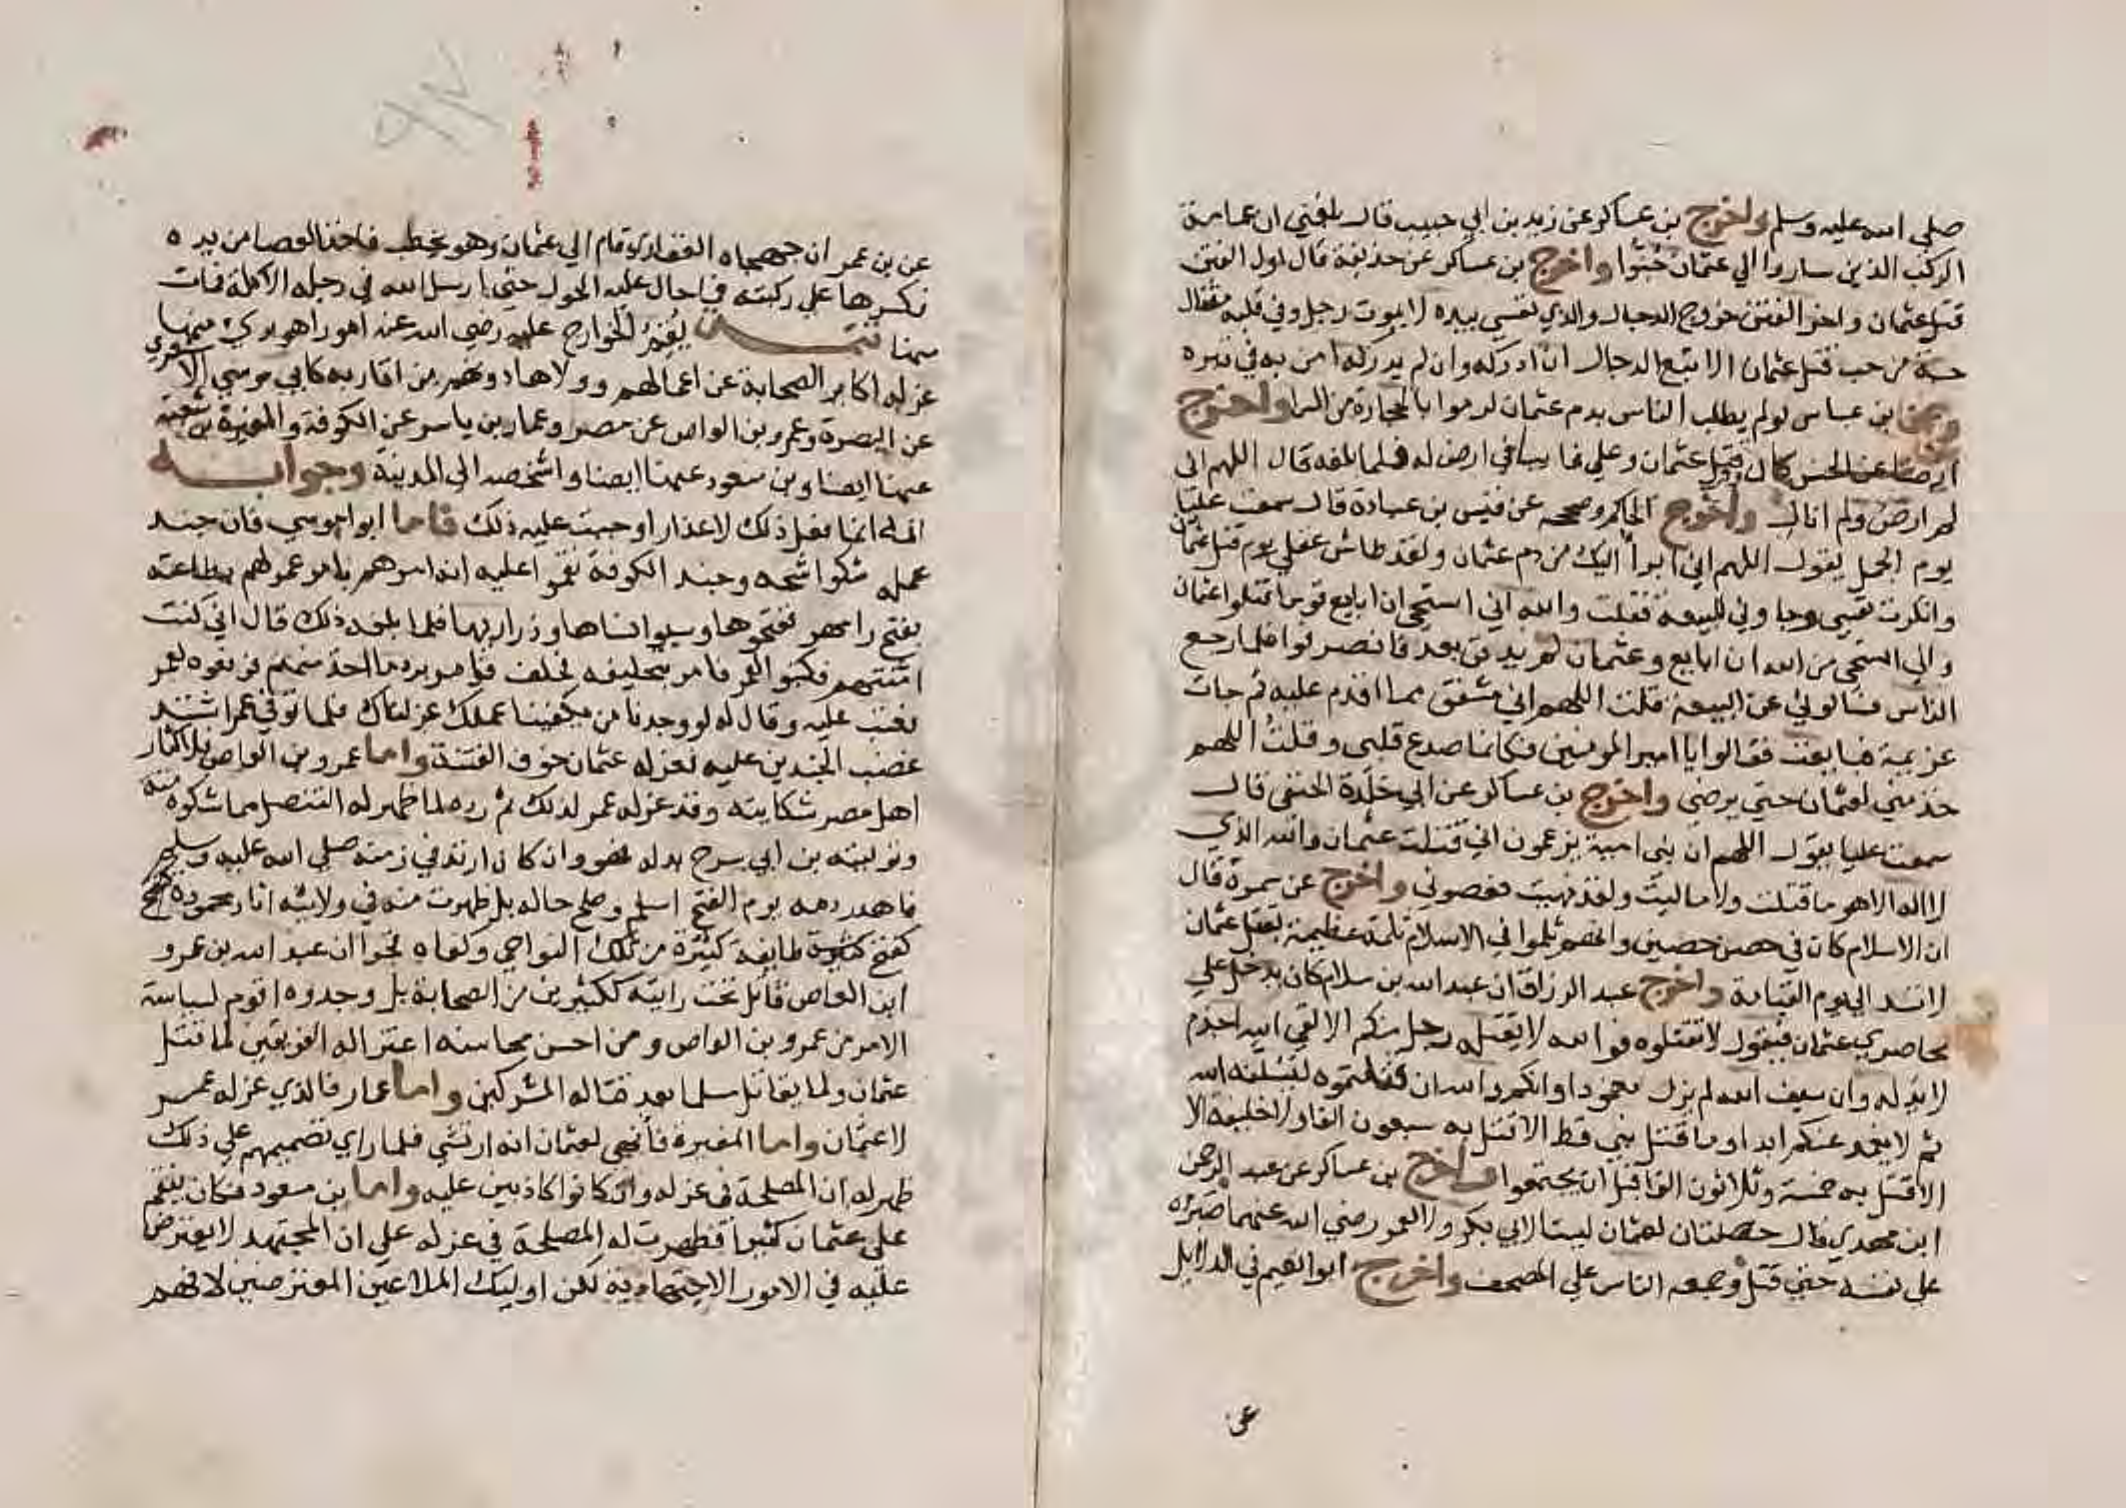 صلى الله عليه وسلم واخرج بن عساكر عن زيد بن ابي حبيب قال بلغني ان عامة
الركب الذين ساروا الي عثمان جنوا واخرج بن عساكر عن حذيفة قال اول الفتن
قتل عثمان واخر الفتن خروج الدجال والذي نفسي بيده لا يموت رجل وفي قلبه مثقال
حبة من حب قتل عثمان الا تبع الدجال ان ادركه وان لم يدركه امن به في قبره
وعن بن عباس لو لم يطلب الناس بدم عثمان لرموا بالحجارة من السما واخرج
ايضا عن الحسن قال قتل عثمان وعلي غايبا في ارض له فلما بلغه قال اللهم اني
لم ارض ولم امال واخرج الحاكم وصححه عن قيس بن عبادة قال سمعت عليا
يوم الجمل يقول اللهم اني ابرأ اليك من دم عثمان ولقد طاش عقلي يوم قتل عثمان
وانكرت نفسي وجاوني للبيعة فقلت والله اني استحي ان ابايع قوما قتلوا عثمان
واني استحي من الله ان ابايع وعثمان لم يدفن بعد فانصرفوا فلما رجع
الناس فسالوني عن البيعة قلت اللهم اني مشفق مما اقدم عليه ثم جات
عزيمة فبايعت فقالوا يا امير المومنين فكانما صدع قلبي وقلت اللهم
خذ مني لعثمان حتي يرضي واخرج بن عساكر عن ابي خلدة الحنفي قال
سمعت عليا يقول اللهم ان بني امية يزعمون اني قتلت عثمان والله الذي
لا اله الا هو ما قتلت ولا ماليت ولقد نهيت فعصوني واخرج عن سمرة قال
ان الاسلام كان في حصن حصين وانهم ثلموا في الاسلام ثلمة عظيمة بقتل عثمان
لا تسد الي يوم القيامة واخرج عبد الرزاق ان عبد الله بن سلام كان يدخل علي
محاصري عثمان فيقول لا تقتلوه فوالله لا يقتله رجل منكم الا لقي الله اجذم
لا يد له وان سيف الله لم يزل مغمودا وانكم والله ان قتلتموه ليسلنه الله
ثم لا يغمده عنكم ابدا وما قتل نبي قط الا قتل به سبعون الفا ولا خليفة الا
الا قتل به خمسة وثلاثون الفا قبل ان يجتمعوا واخرج بن عساكر عن عبد الرحمن
ابن مهدي قال خصلتان لعثمان ليستا لابي بكر ولا لعمر رضي الله عنهما صبره
على نفسه حتي قتل وجمعه الناس علي المصحف واخرج ابو نعيم في الدلايل
عن
عن بن عمر ان جهجاه الغفاري قام الي عثمان وهو يخطب فاخذ العصا من يده
فكسرها علي ركبته فما حال عليه الحول حتي ارسل الله في رجله الاكلة فمات
منها تتمــة نقم الخوارج عليه رضي الله عنه امورا هو بري منها
عزله اكابر الصحابة عن اعمالهم وولاها دونهم من اقاربه كابي موسي الاشعري
عن البصرة وعمرو بن العاص عن مصر وعمار بن ياسر عن الكوفة والمغيرة بن شعبة
عنها ايضا وبن مسعود عنها ايضا واشخصه الى المدينة وجوابــه
انه انما فعل ذلك لاعذار اوجبت عليه ذلك فاما ابو موسي فان جند
عمله شكوا شحه وجند الكوفة نقموا عليه انه امرهم بامر عمر لهم بطاعته
بفتح رامهرمز ففتحوها وسبوا نساها وذراريها فلما بلغه ذلك قال اني كنت
امنتهم فكتبوا لعمر فامر بتحليفه فحلف فامر برد ما اخذ منهم فرفعوه لعمر
فعتب عليه وقال له لو وجدنا من يكفينا عملك عزلناك فلما توفي عمر اشتد
غضب الجندين عليه فعزله عثمان خوف الفتنة واما عمرو بن العاص فلاكثار
اهل مصر شكايته وقد عزله عمر لذلك ثم رده لما ظهر له التنصل مما شكوه منه
وتوليته بن ابي سرح بدله فهو وان كان ارتد في زمنه صلي الله عليه وسلم
فاهدر دمه يوم الفتح اسلم وصلح حاله بل ظهرت منه في ولايته اثار محمودة
كفتح طايفة كثيرة من تلك النواحي وكفاه فخرا ان عبد الله بن عمرو
ابن العاص قاتل تحت رايته ككثيرين من الصحابة بل وجدوه اقوم لسياسة
الامر من عمرو بن العاص ومن احسن محاسنه اعتزاله الفريقين لما قتل
عثمان ولم يقاتل مسلما بعد قتاله المشركين واما عمار فالذي عزله عمر
لا عثمان واما المغيرة فانهي لعثمان انه ارتشي فلما راي تصميمهم علي ذلك
ظهر له ان المصلحة في عزله وان كانوا كاذبين عليه واما بن مسعود فكان ينقم
على عثمان كثيرا فظهرت له المصلحة في عزله علي ان المجتهد لا يعترض
عليه في الامور الاجتهادية لكن اوليك الملاعين المعترضين لا فهم